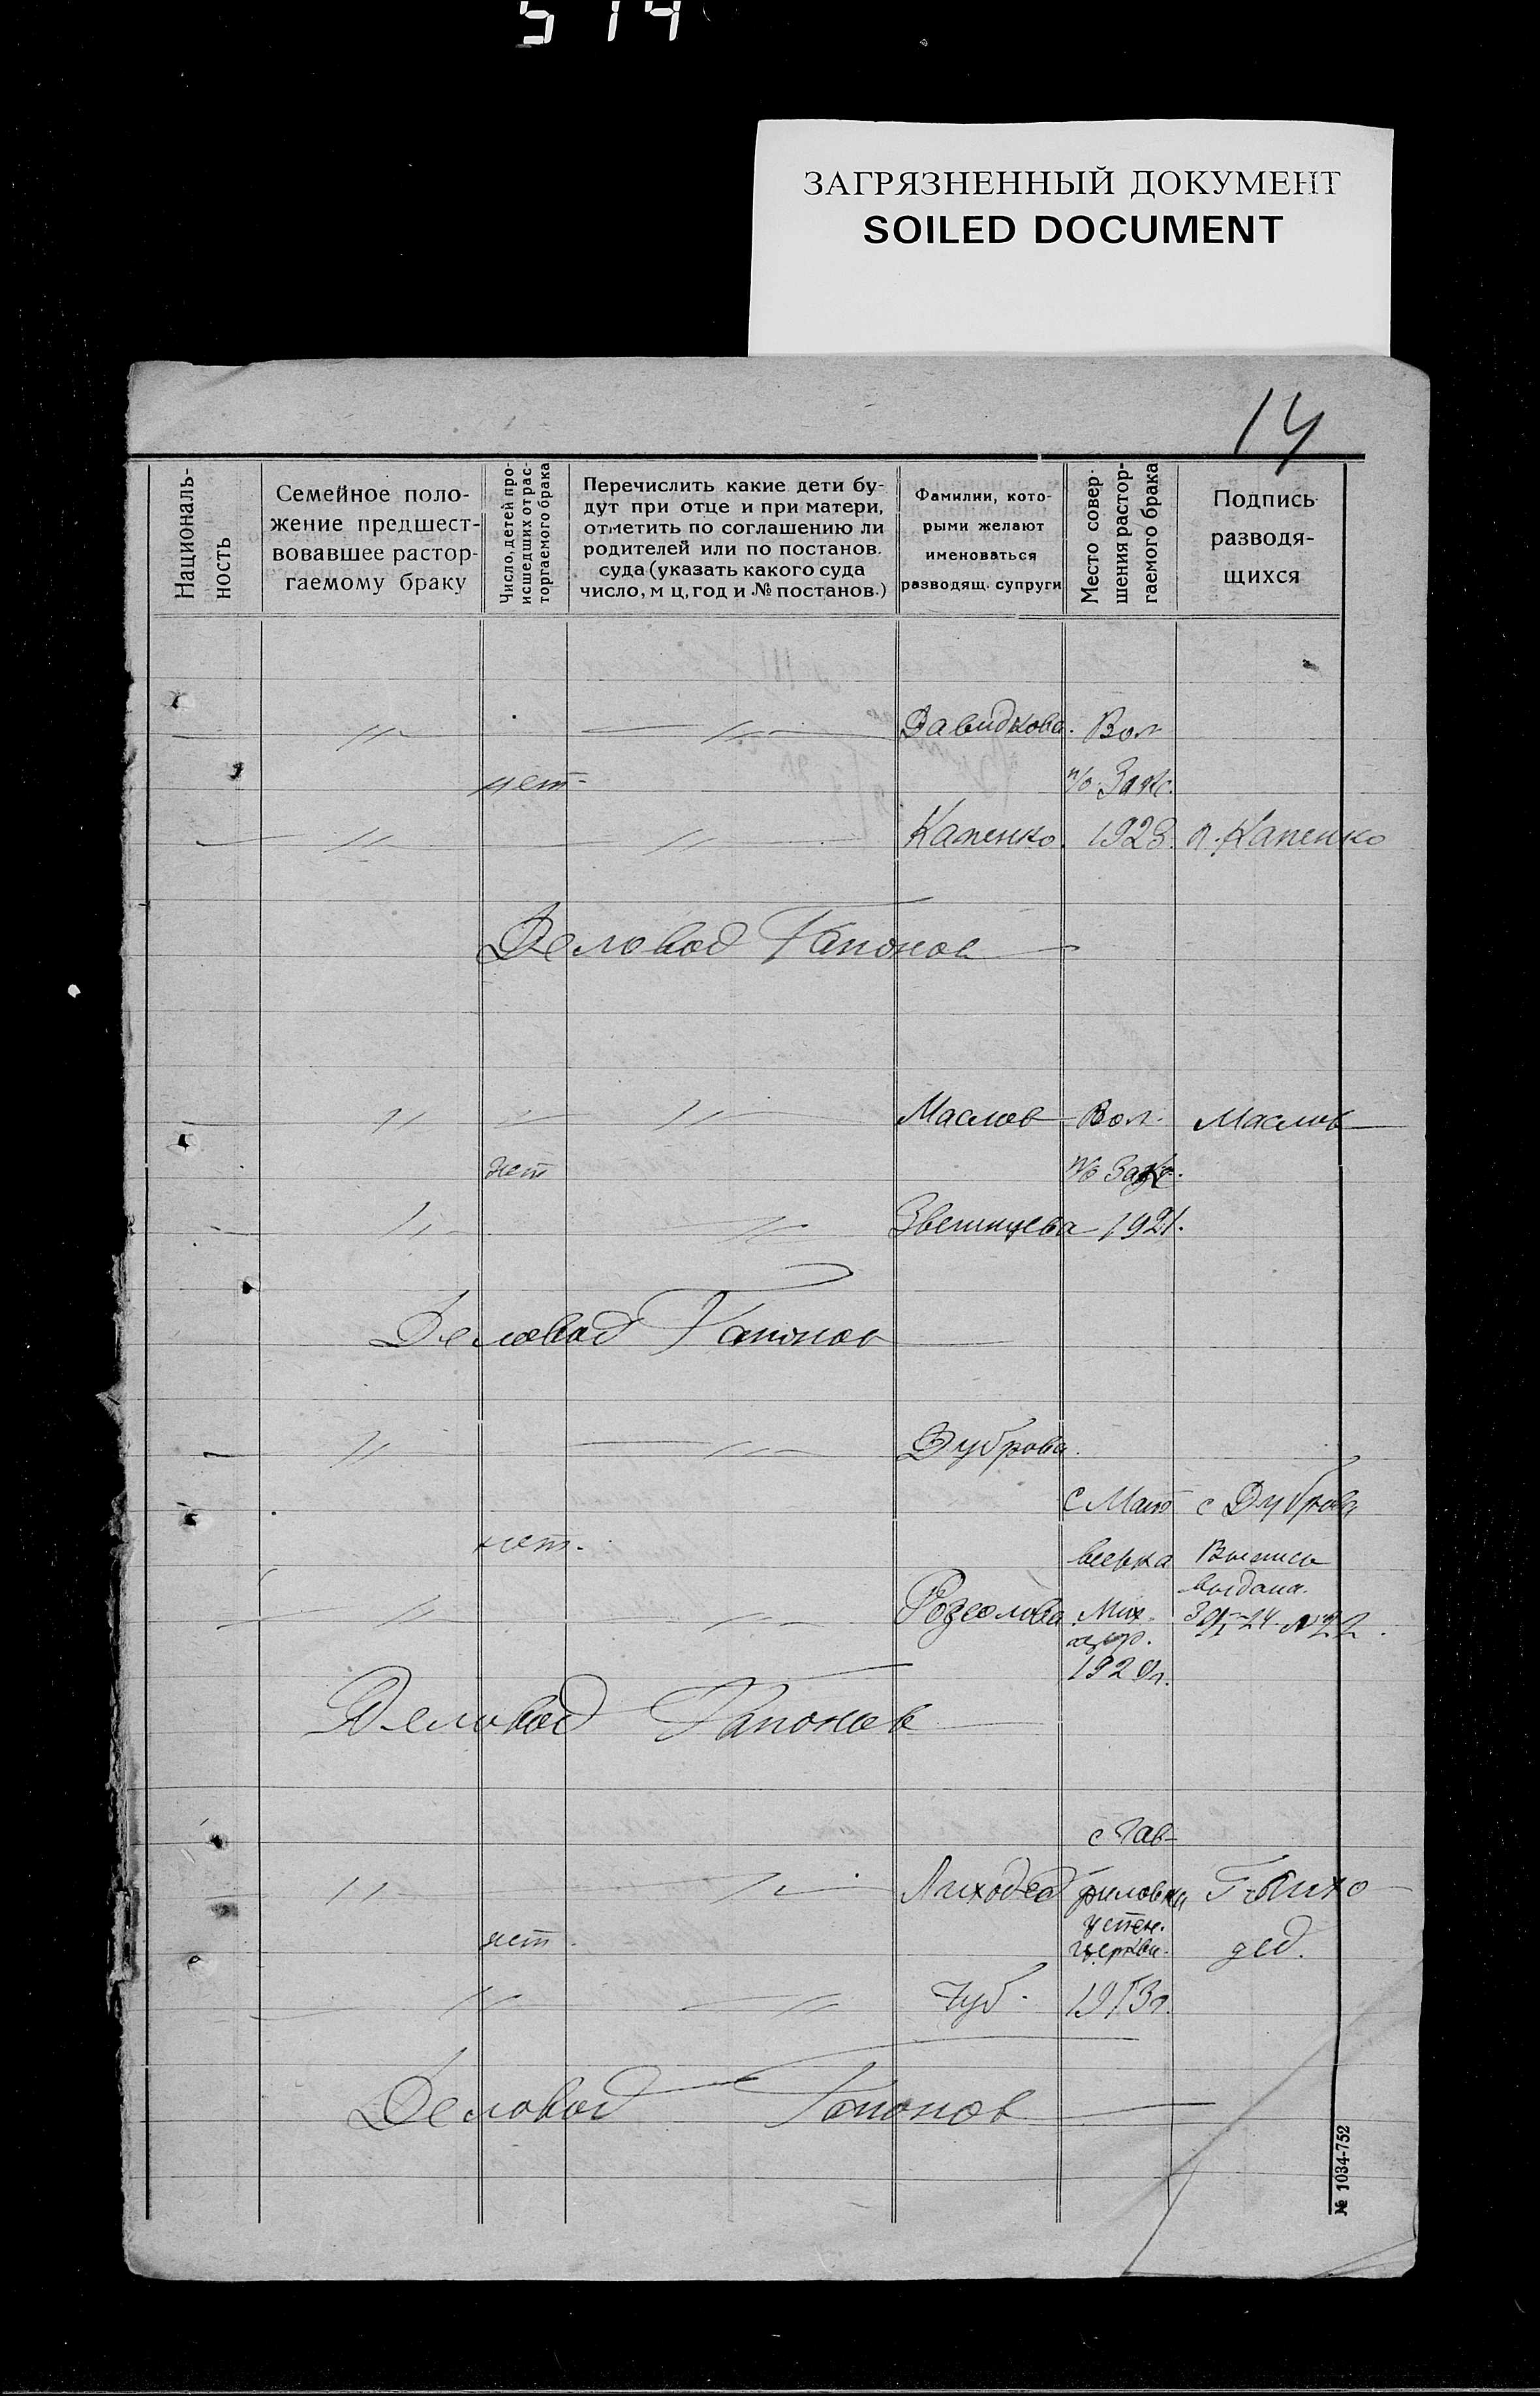 514
ЗАГРЯЗНЕННЫЙ ДОКУМЕНТ
SOILED DOCUMENT
14
Националь-
ность
Семейное поло-
жение предшест-
вовавшее растор-
гаемому браку
Число, детей про-
исшедших от рас-
торгаемого брака
Перечислить какие дети бу-
дут при отце и при матери,
отметить по соглашению ли
родителей или по постанов.
суда (указать какого суда
число, м ц, год и № постанов.)
Фамилии, кото-
рыми желают
именоваться
разводящ. супруги
Место совер-
шения растор-
гаемого брака
Подпись
разводя-
щихся
— " — — " — Давидкова. Вол
нет - п/о Закс.
— " — — " — Капенко. 1923. п. Капенко
Деловод Гапонов
— " — — " — Маслов Вол. Маслов
нет п/о Закс.
— " — — " — 1921.
Деловод Гапонов
— " — — " — Дуброва.
с Мат с Дуброва
нет. веевка Выпись
выдана.
— " — — " — Мих. №22.
церр.
192 г.
Деловод Гапонов
с Гав-
— " — — " — Лиходед риловка Г. Лихо
нет. успен. дед.
церкви.
— " — — " — Чуб. 1913г.
Деловод Гапонов
№ 1034-752